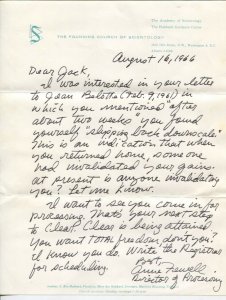 S
The Academy of Scientology
The Hubbard Guidance Center
THE FOUNDING CHURCH OF SCIENTOLOGY
August 16, 1966
Dear Jack,
I was interested in your letter
to Jean (Feb. 9, 1961) in
which you mentioned after
about two weeks "you found
yourself slipping back downscale"
This is an indication that when
you returned home, someone
had invalidated your gains.
At present is anyone invalidating
you? Let me know.
I want to see you come in for
processing. That's your next step
to Clear. Clear is being attained.
You want TOTAL freedom, don't you?
I know you do. Write the Registrar
for scheduling.
Best,
Anne
Director of Processing